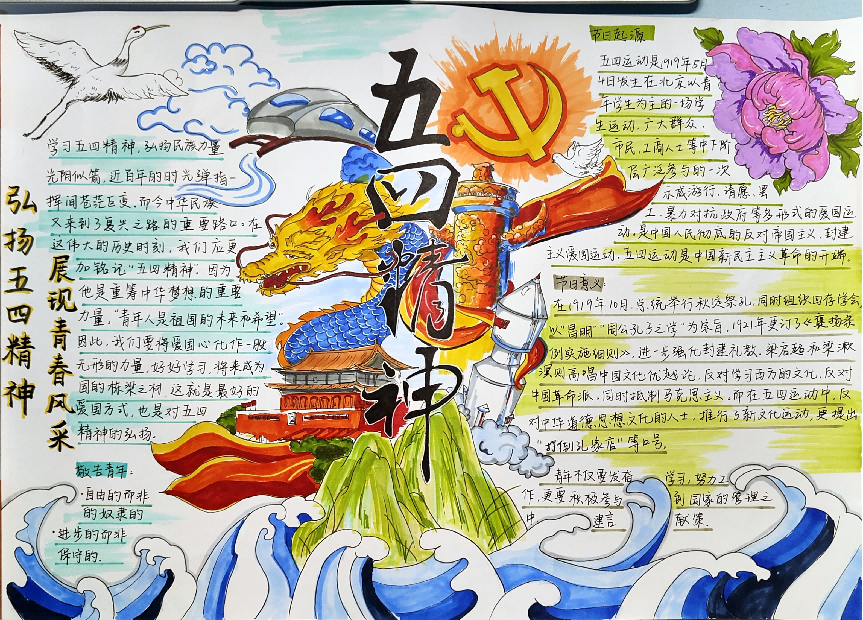 弘扬五四精神
展现青春风采
五四精神
学习五四精神，弘扬民族力量
光阴似箭，近百年的时光弹指一
挥间苍茫巨变，而今中华民族
又来到了复兴之路的重要路口：在
这伟大的历史时刻，我们应更
加铭记“五四精神”，因为
他是重筹中华梦想的重要
力量，“青年人是祖国的未来和希望”
因此，我们要将爱国心化作一股
无形的力量，好好学习，将来成为
国的栋梁之材，这就是最好的
爱国方式，也是对五四
精神的弘扬.
敬告青年：
·自由的而非
的奴隶的
·进步的而非
保守的.
节日起源
五四运动是1919年5月
4日发生在北京以青
年学生为主的一场学
生运动，广大群众、
市民，工商人士等中下阶
层广泛参与的一次
示威游行，请愿、罢
工、暴力对抗政府等多形式的爱国运
动，是中国人民彻底的反对帝国主义、封建
主义爱国运动，五四运动是中国新民主主义革命的开端.
节日意义：
在1919年10月，总统举行秋丁祭孔，同时组织四存学会
以“昌明”“周公孔子之学”为宗旨，1921年更订了《褒扬条
例实施细则》，进一步强化封建礼教，梁启超和梁漱
溟则高唱中国文化优越论，反对学习西方的文化，反对
中国革命派，同时抵制马克思主义，而在五四运动中，反
对中华道德思想文化的人士，推行了新文化运动，更提出
“打倒孔家店”等口号。
青年不仅要发奋 学习，努力工
作，更要积极参与 到国家的管理之
中 建言 献策.